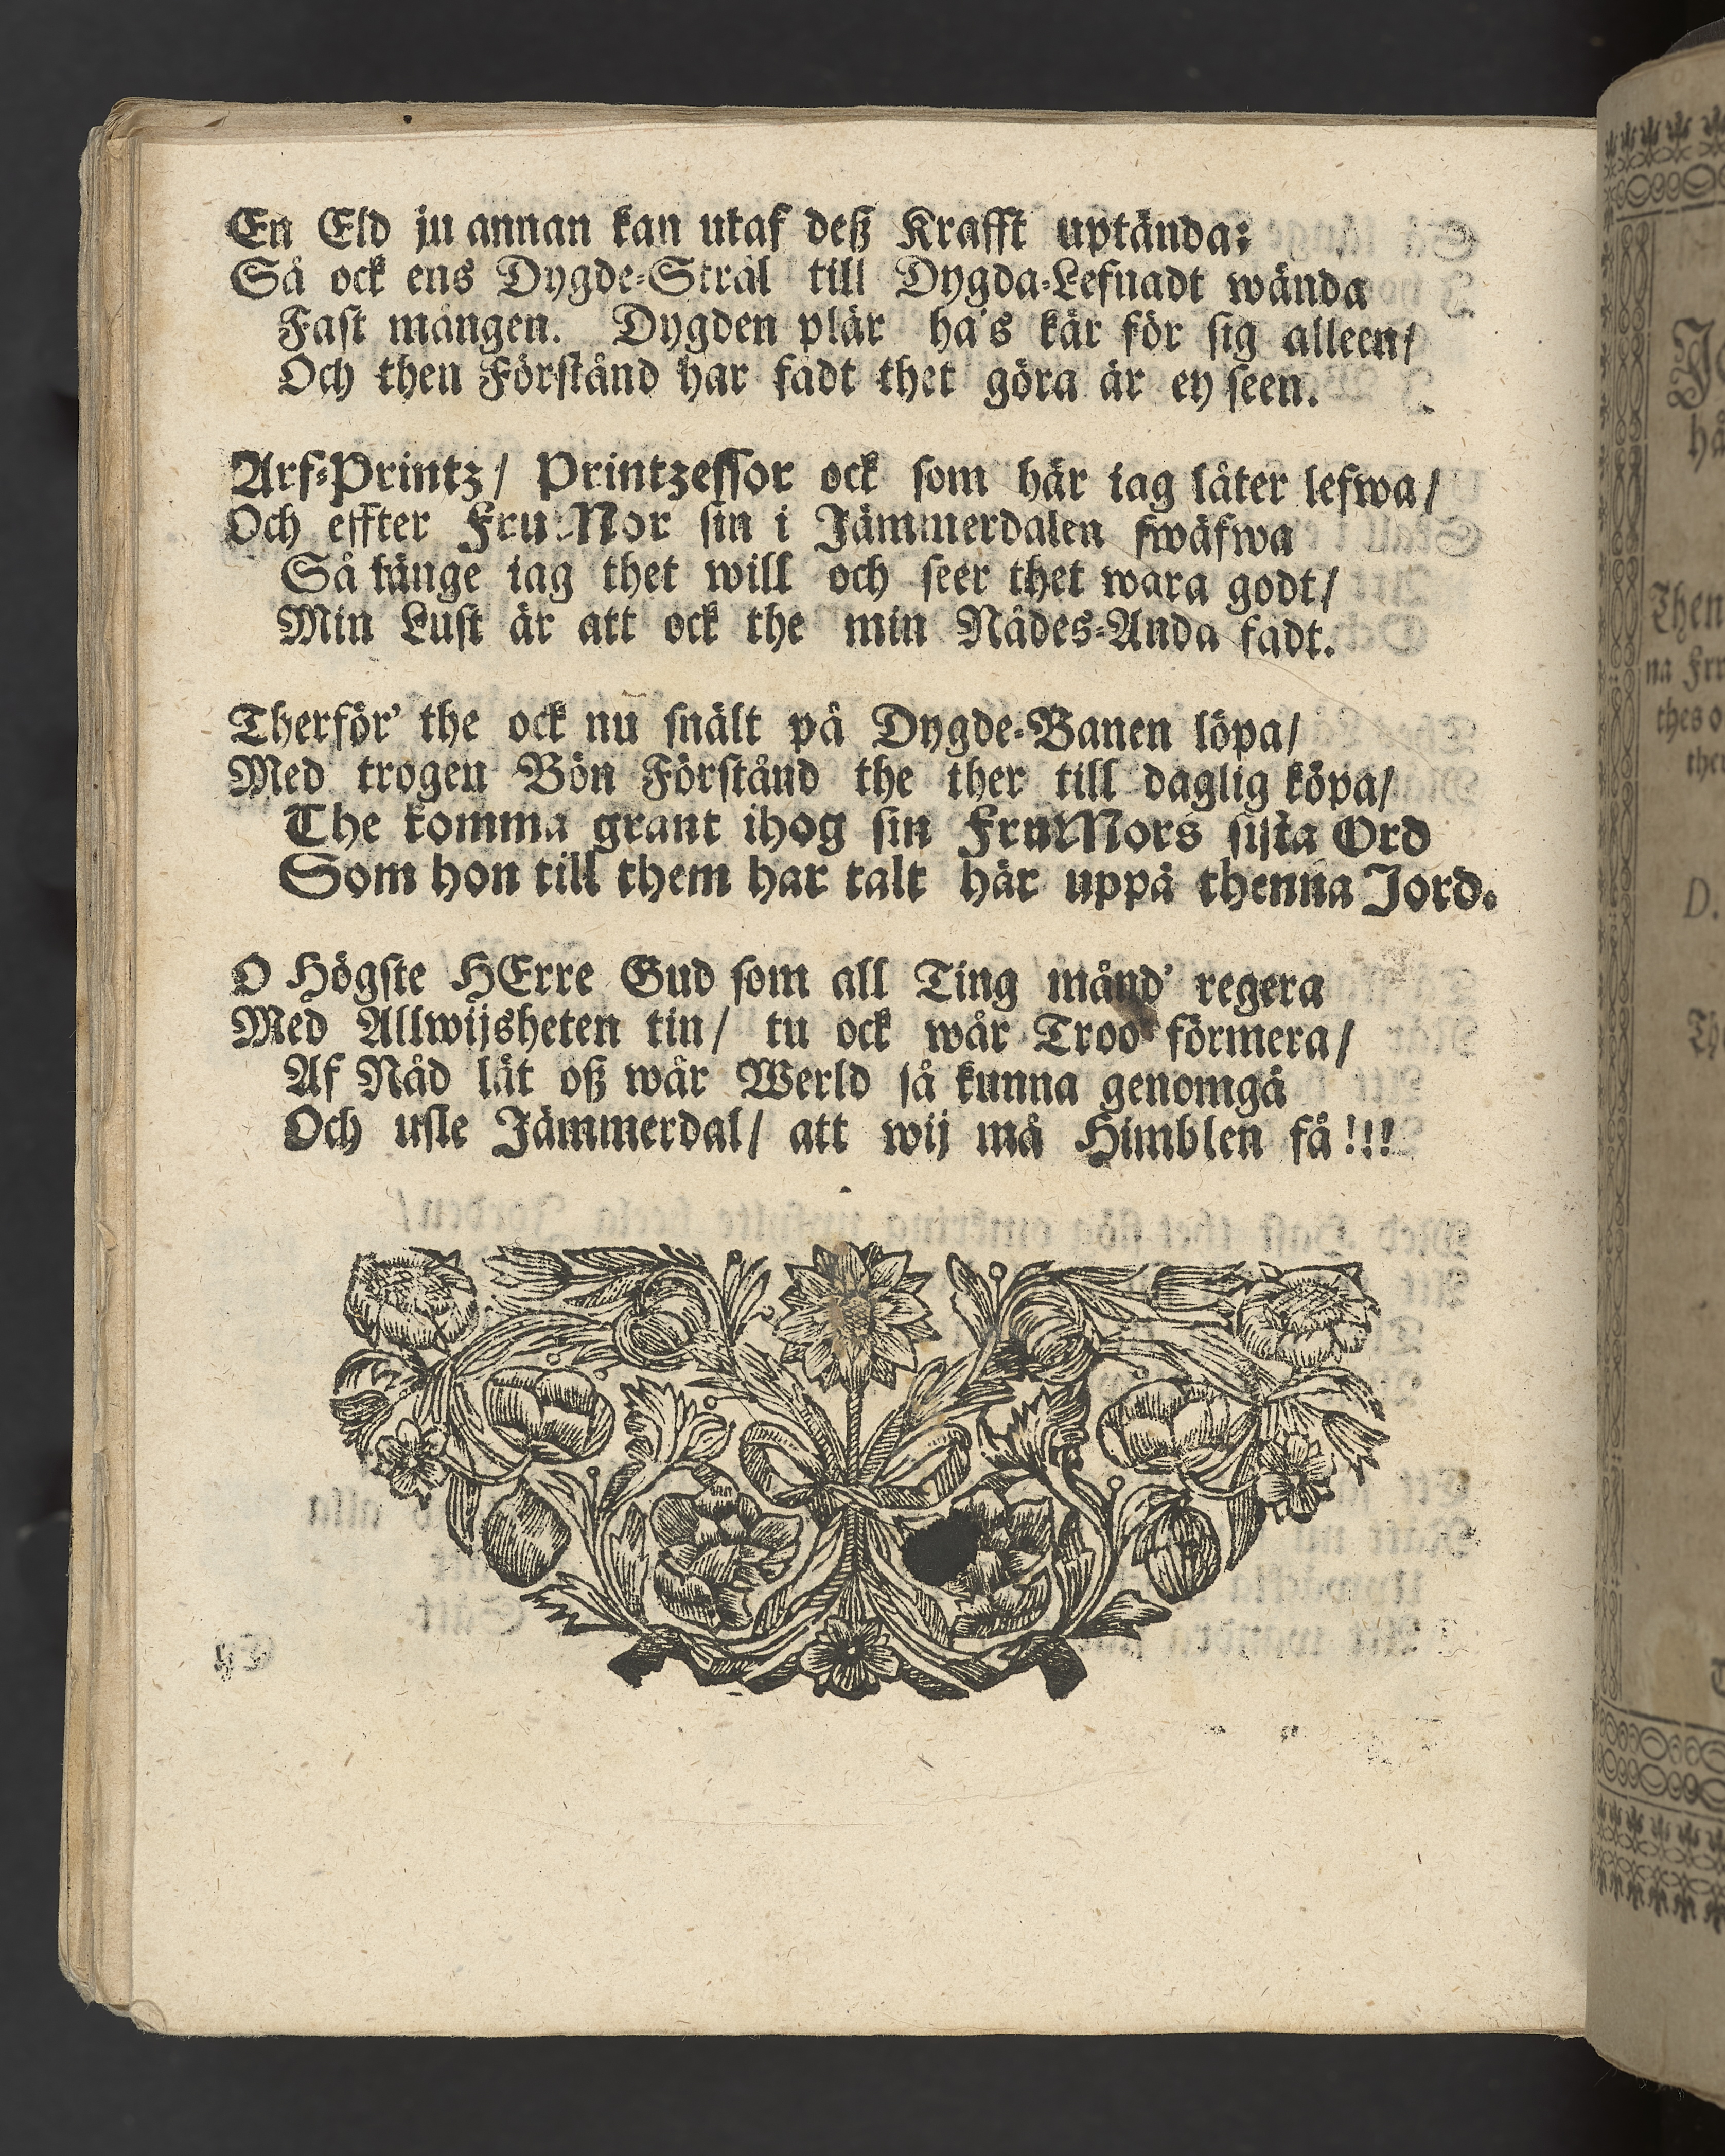 En Eld ju annan kan utaf deß Krafft uptända:
Så ock ens Dygde-Strål till Dygda-Lefnadt wända
Fast mången. Dygden plär ha's kär för sig alleen/
Och then Förstånd har fådt thet göra är ey seen.
Arf-Printz/ Printzessor ock som här iag låter lefwa/
Och effter Fru-Mor sin i Jämmerdalen swäfwa
Så länge iag thet will och seer thet wara godt/
Min Lust är att ock the min Nådes-Anda fådt.
Therför' the ock nu snält på Dygde-Banen löpa/
Med trogen Bön Förstånd the ther till daglig köpa/
The komma grant ihog sin FruMors sista Ord
Som hon till them har talt här uppå thenna Jord.
O Högste HErre Gud som all Ting månd' regera
Med Allwijsheten tin/ tu ock wår Troo förmera/
Af Nåd låt oß wår Werld så kunna genomgå
Och usle Jämmerdal/ att wij må Himblen få!!!